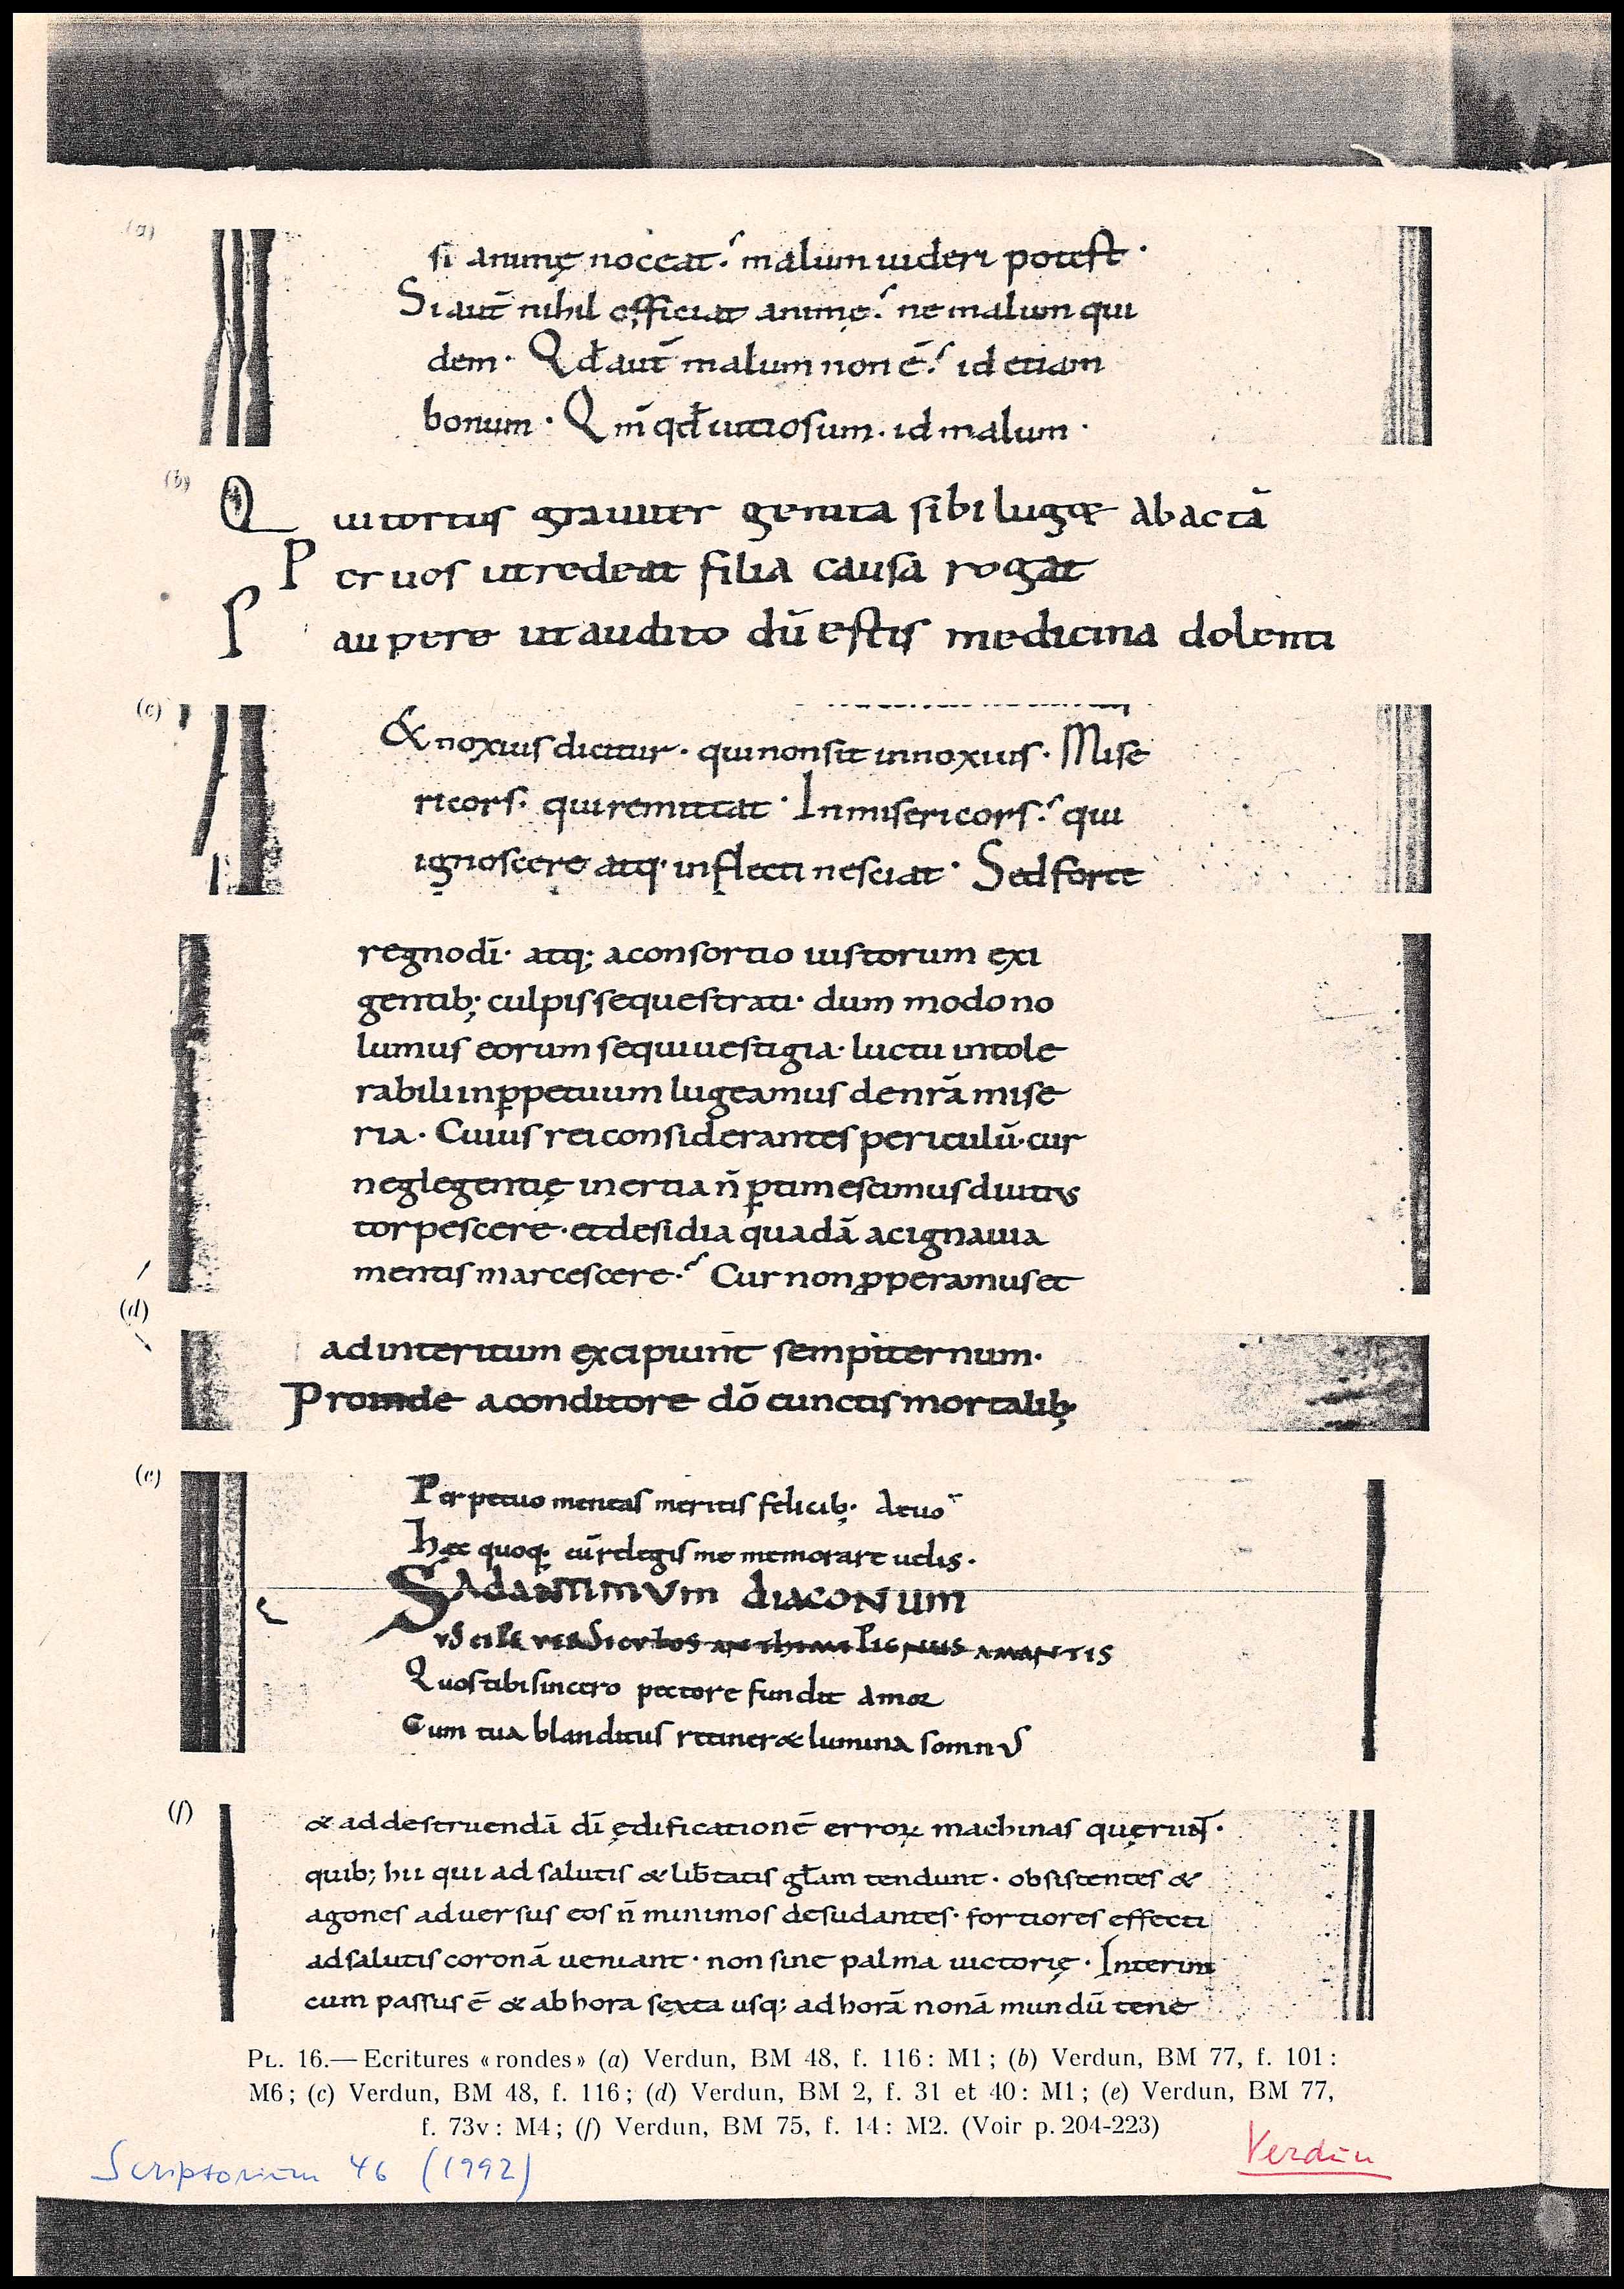 (a)
si animę noceat. malum uideri potest ·
Si aut̄ nihil officiat animę. ne malum qui
dem · Qd̄ aut̄ malum non ē. id etiam
bonum · Qm̄ qd̄ uitiosum. id malum ·
(b)
Qui tortus grauiter genita sibi luget abactā
Per uos ut redeat filia causa rogat
Paupere ut audito dū estis medicina dolenti
(c)
& noxius dicitur · qui non sit innoxius · Mise
ricors · qui remittat · Inmisericors. qui
ignoscere atq· inflecti nesciat · Sed forte
regno dī · atq; a consortio iustorum exi
gentib; culpis sequestrati · dum modo no
lumus eorum sequi uestigia · luctu intole
rabili in ꝑpetuum lugeamus de nr̄a mise
ria · Cuius rei considerantes periculū · cur
neglegentię inertia n̄ ꝑtimescimus diutius
torpescere · et desidia quadā ac ignauia
mentis marcescere · Cur non ꝓperamus et
(d)
ad interitum excipiunt sempiternum·
Proinde a conditore dō cunctis mortalib;
(e)
Perpetuo mentas meritis felicib; Atuo
Hęc quoq; cū relegis me memorare uelis ·
S Ad ANTIMVM diACONUM
Quos tibi sincero pectore fundit amor
Cum tua blanditus retineret lumina somnus
(f)
& ad destruendā dī ędificationē erroꝝ machinas quęrunt ·
quib; hii qui ad salutis & lib̄tatis gl̄am tendunt · obsistentes &
agones aduersus eos n̄ minimos desudantes · fortiores effecti
ad salutis coronā ueniant · non sine palma uictorię · Interim
cum passus ē & ab hora sexta usq; ad horā nonā mundū tene
PL. 16.— Ecritures «rondes» (a) Verdun, BM 48, f. 116 : M1 ; (b) Verdun, BM 77, f. 101 :
M6 ; (c) Verdun, BM 48, f. 116 ; (d) Verdun, BM 2, f. 31 et 40 : M1 ; (e) Verdun, BM 77,
f. 73v : M4 ; (f) Verdun, BM 75, f. 14 : M2. (Voir p. 204-223)
Scriptorium 46 (1992)
Verdun